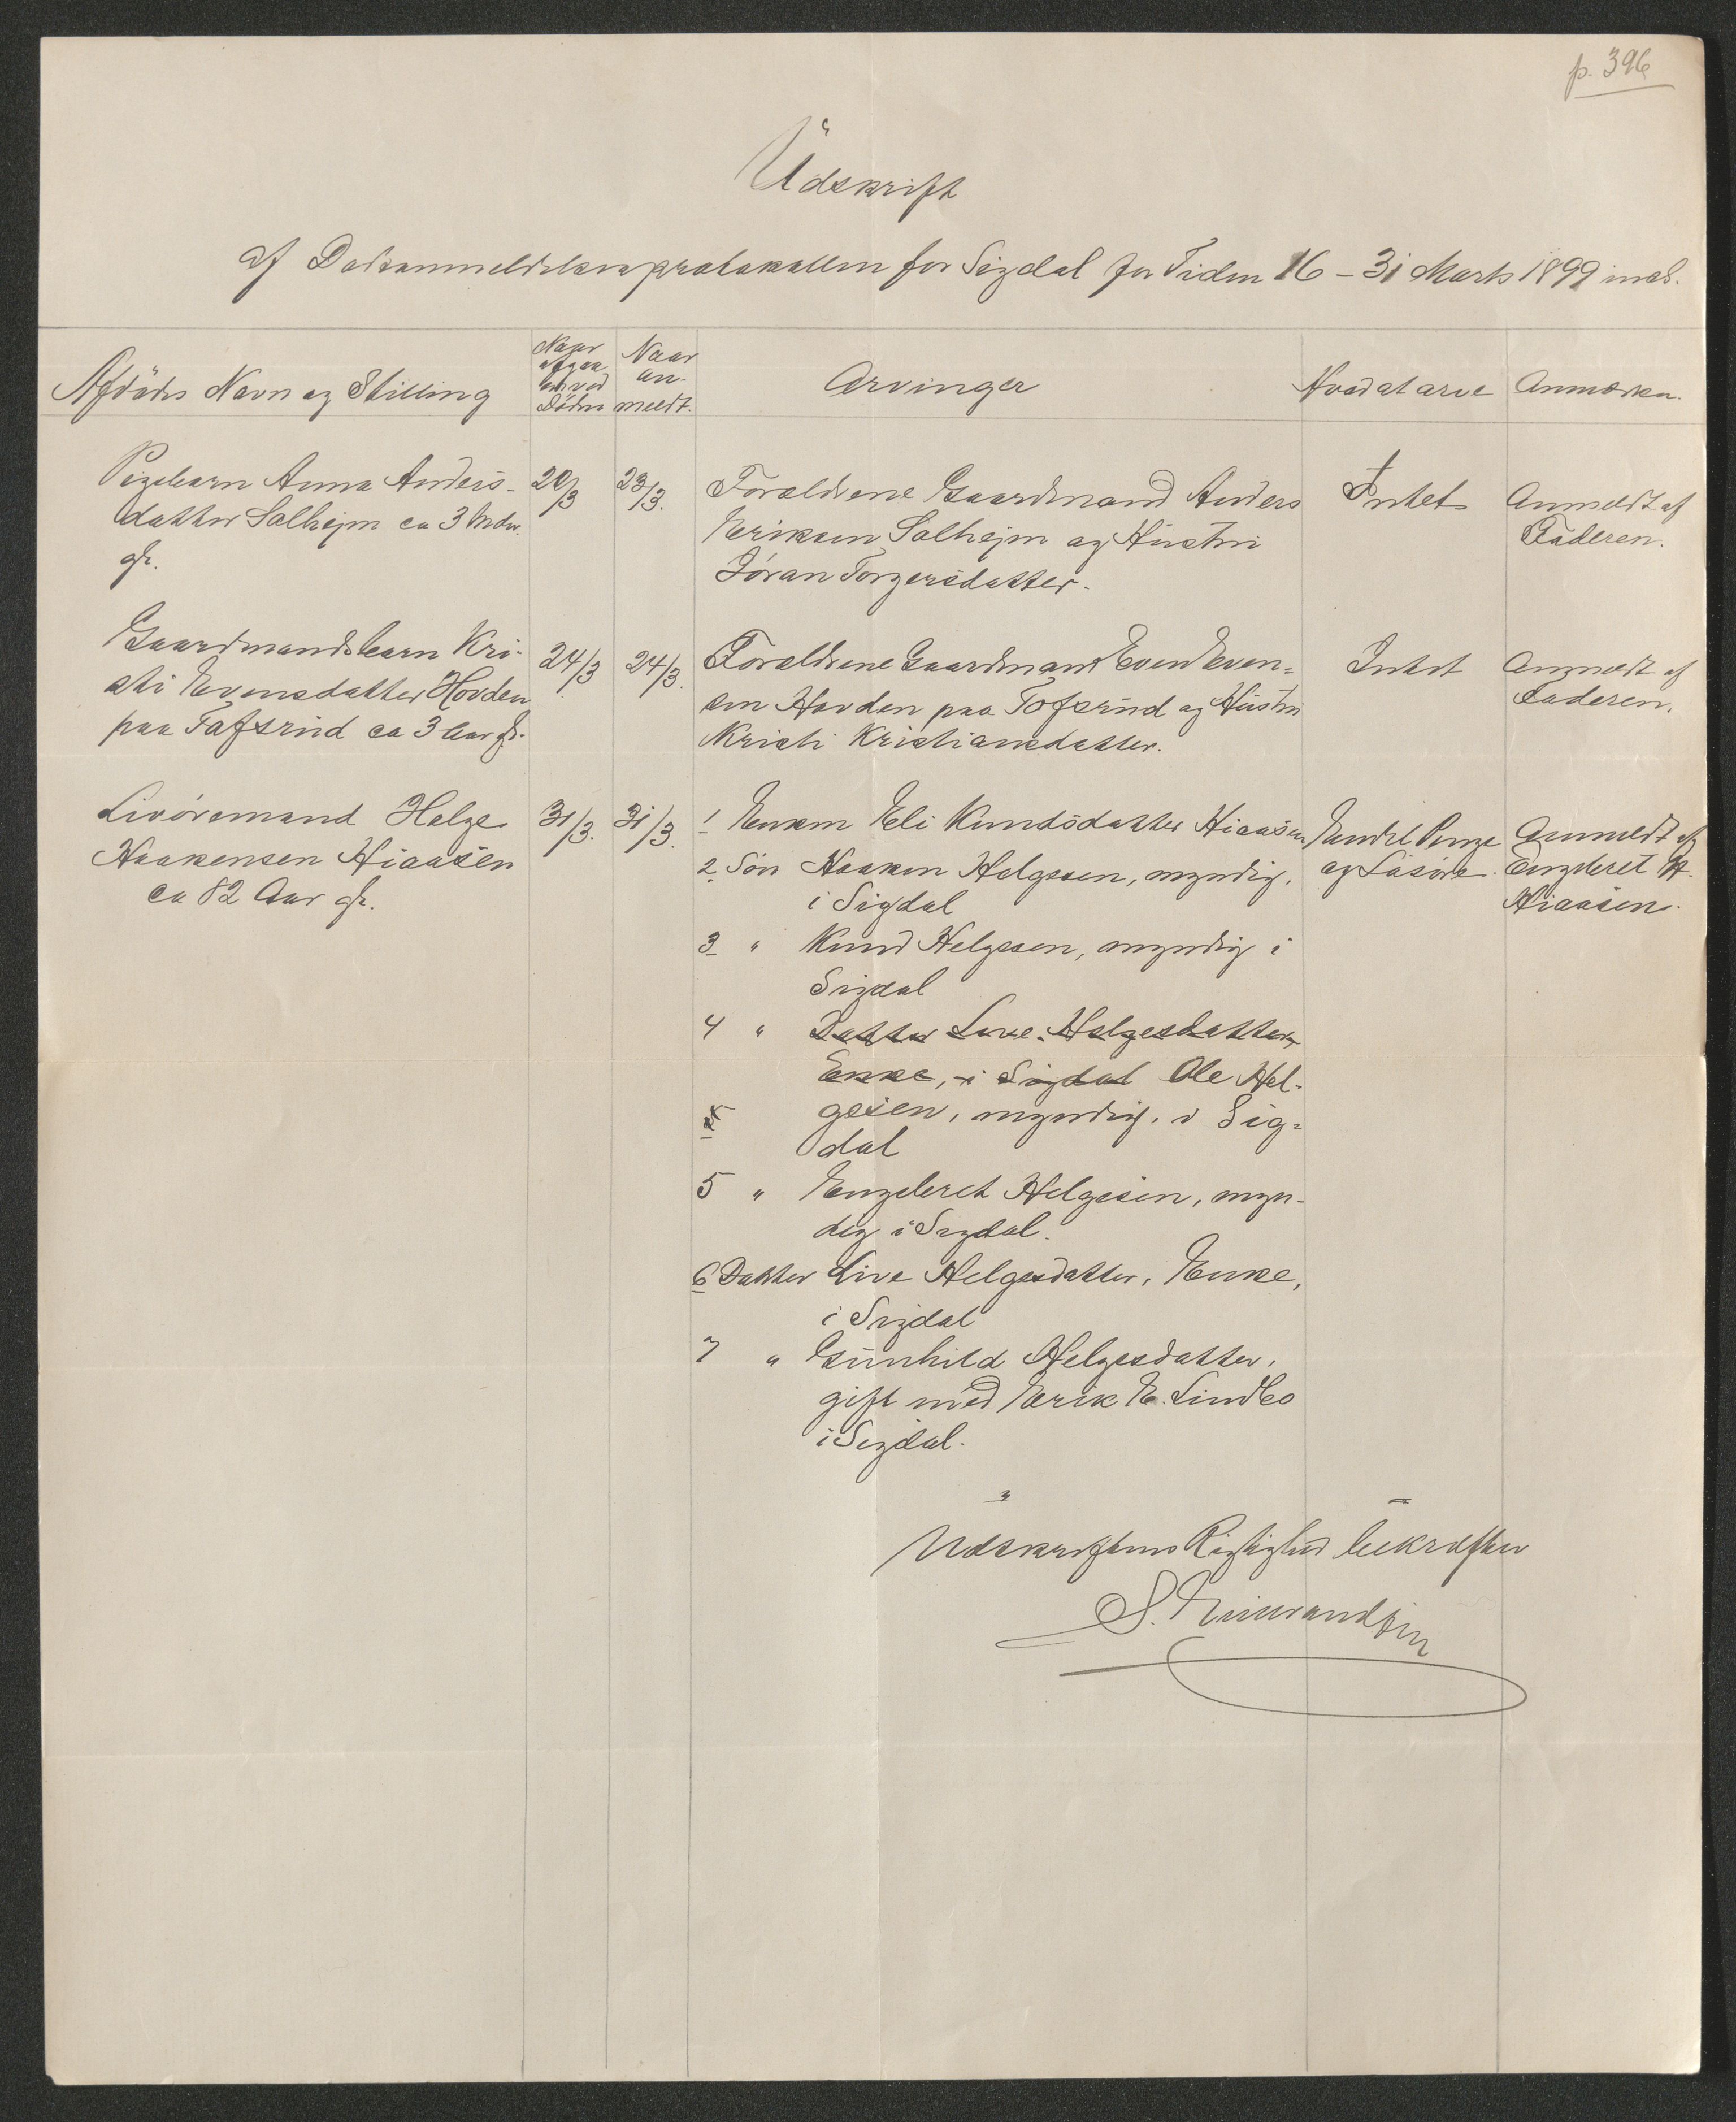 p. 396
Udskrift
af Dødsanmeldelsesprotokollen for Sigdal for Tiden 16 – 31 Marts 1899 incl.
Afdødes Navn og Stilling
Naar
afgaa
en ved
Döden
Naar
an-
meldt.
Arvinger
Hvad at arve
Anmærkn.
Pigebarn Anna Anders-
datter Solhejm ca 3 Mdr.
gl.
20/3
23/3.
Forældrene Gaardmand Anders
Eriksen Solhejm og Hustru
Jøran Torgersdatter.
Intet
Anmeldt af
Faderen.
Gaardmandsbarn Kri-
sti Evensdatter Hovden
paa Tofsrud ca 3 Aar gl.
24/3
24/3.
Forældrene Gaardmand Even Even-
sen Hovden paa Tofsrud og Hustru
Kristi Kristiansdatter.
Intet
Anmeldt af
Faderen.
Livöremand Helge
Haakensen Hiaasen
ca 82 Aar gl.
31/3.
31/3.
1 Enken Eli Knudsdatter Hiaasen
2. Sön Haaken Helgesen, myndig,
i Sigdal
3 " Knud Helgesen, myndig i
Sigdal
4 " Datter Live Helgesdatter,
Enke, i Sigdal Ole Hel-
5 gesen, myndig, i Sig-
dal
5 " Engebret Helgesen, myn-
dig i Sigdal.
6 Datter Live Helgesdatter, Enke,
i Sigdal
7 " Gunhild Helgesdatter,
gift med Erik E. Lindbo
i Sigdal.
Endel Penge
og Lösöre.
Anmeldt af
Engebret H.
Hiaasen.
Udskriftens Rigtighed bekræfter
S.